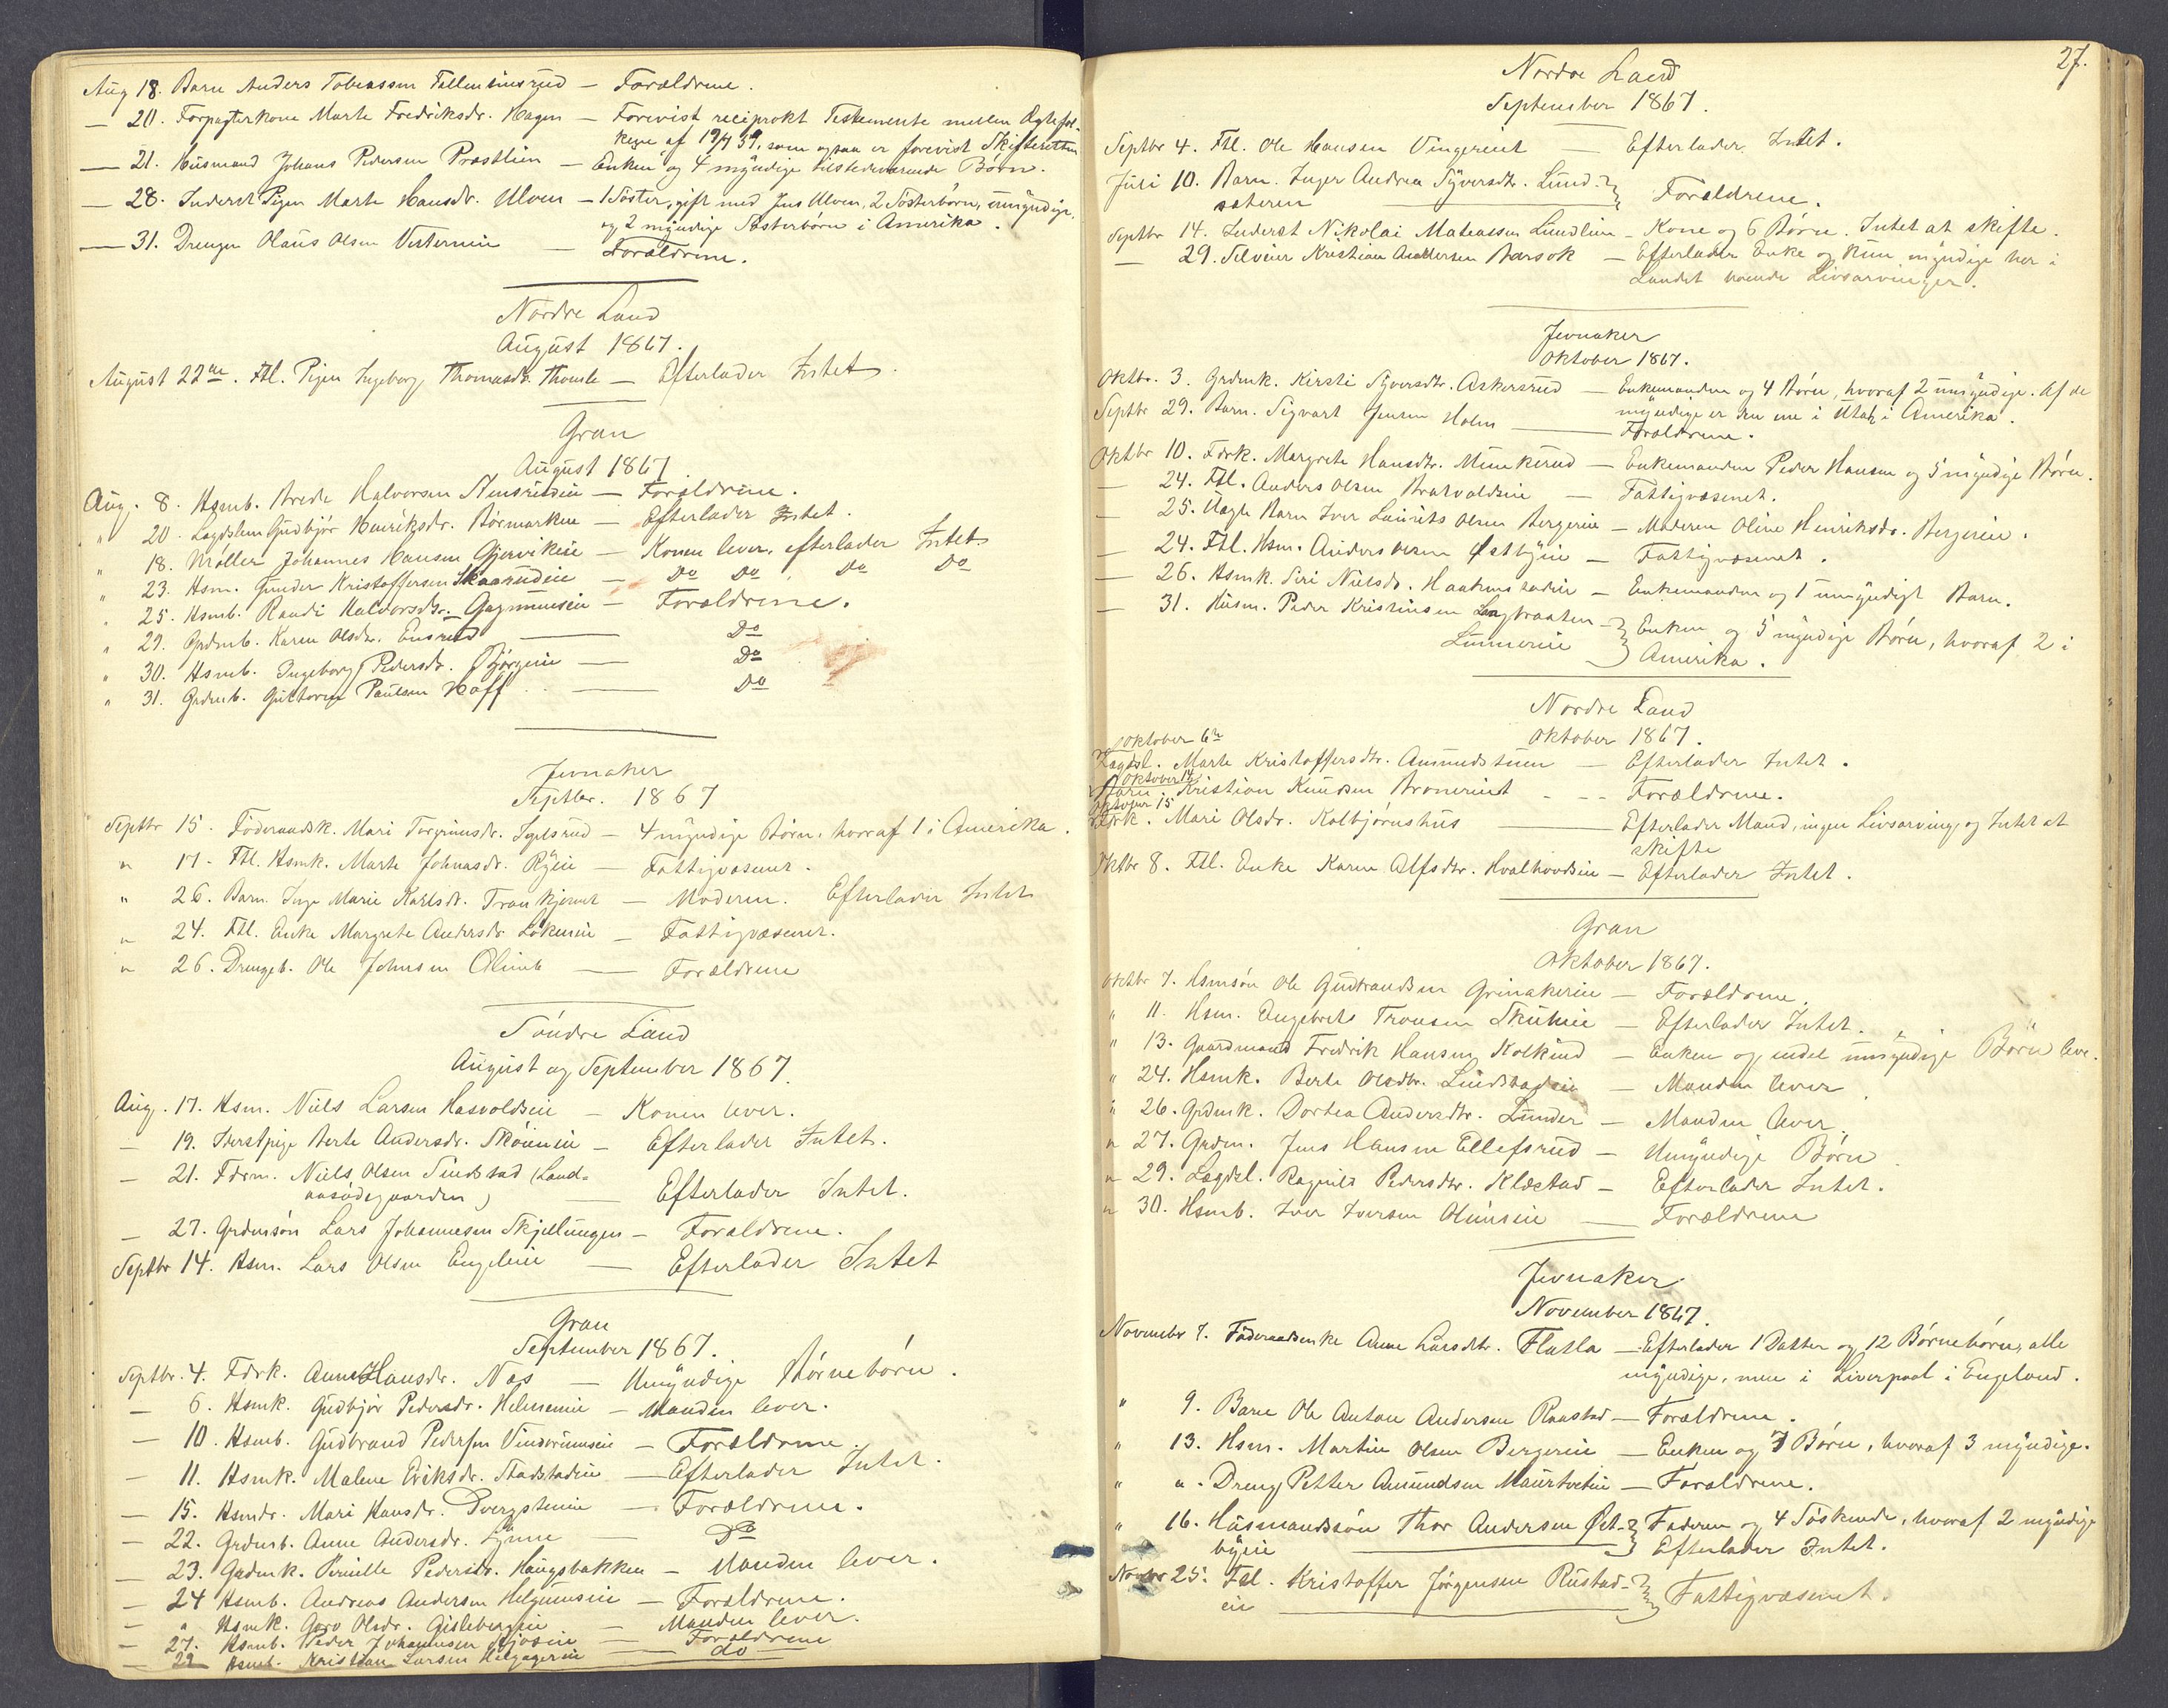 Aug 18. Barn Anders Tobiassen Fallentinsrud — Forældrene.
— 20. Forpagterkone Marte Fredriksdr. Hagen — Forevist reciprokt Testemente mellem Ægtefol-
kene af 19/9 59, som ogsaa er forevist Skifteretten
— 21. Husmand Johans Pedersen Præstlien — Enken og 4 myndige tilstedeværende Børn.
— 28. Inderst Pigen Marte Hansdr. Ulven — 1 Söster, gift med Jens Ulven, 2 Sösterbörn, umyndige,
og 2 myndige Sösterbörn i Amerika.
— 31. Drengen Olaus Olsen Vesternin — Forældrene.
Nordre Land
August 1867.
August 22de. Ftl. Pigen Ingeborg Thomasdr. Thomle — Efterlader Intet.
Gran
August 1867.
Aug. 8. Hsmb. Brede Halvorsen — Forældrene.
" 20. Lægdslem Gudbjör Henriksdr. Börmarken — Efterlader Intet.
" 18. Möller Johannes Hansen Gjervikeie — Konen lever, efterlader Intet
" 23. Hsm. Gunder Kristoffersen Skaarudeie — Do Do, Do Do
" 25. Hsmb. Randi Halvorsdr. — Forældrene.
" 29. Grdmb. Karen Olsdr. Ensrud — Do
" 30. Hsmb. Ingeborg Pedersdr. Bjørgeeie — Do
" 31. Grdmb. Guttorm Paulsen Hoff — Do
Jevnaker
Septbr. 1867
Septbr 15. Föderaadsk. Mari Torgrimsdr. Igelsrud — 4 myndige Börn, hvoraf 1 i Amerika.
" 17. Ftl. Hsmk. Marte Johnasdr. Ryeie — Fattigvæsenet.
" 26. Barn. Inge Marie Karlsdr. Trankjernet — Moderen. Efterlader Intet
" 24. Ftl. Enke Margrete Andersdr. Lökeneie — Fattigvæsenet.
" 26. Drengeb. Ole Johnsen Olimb — Forældrene
Söndre Land
August og September 1867.
Aug. 17. Hsm. Niels Larsen Hasvoldseie — Konen lever.
— 19. Iderstpige Berte Andersdr. Sköieneie — Efterlader Intet.
— 21. Fdrm. Niels Olsen Sindstad (Land-
aasödegaarden) — Efterlader Intet.
— 27. Grdmsön Lars Johannesen Skjellungen — Forældrene.
Septbr 14. Hsm. Lars Olsen Engeleie — Efterlader Intet
Gran
September 1867.
Septbr. 4. Fdrk. Anne Hansdr. Næs — Umyndige Börnebörn.
— 6. Hsmk. Gudbjör Pedersdr. Helmeneie — Manden lever.
— 10. Hsmb. Gudbrand Pedersen — Forældrene.
— 11. Hsmk. Malene Eriksdr. Stadstadeie — Efterlader Intet.
— 15. Hsmdr. Mari Hansdr. Dvergsteneie — Forældrene.
— 22. Grdmb. Anne Andersdr. Lynne — Do
— 23. Grdmk. Pernille Pedersdr. Haugsbakken — Manden lever.
— 24 Hsmb. Andreas Andersen Helgumseie — Forældrene.
— " Hsmk. Goro Olsdr. Gislebergeie — Manden lever.
— 27. Hsmb. Peder Johannesen — Forældrene
— 29 Hsmb. Kristian Larsen Helgageneie — do
27.
Nordre Land
September 1867.
Septbr 4. Ftl. Ole Hansen Vingereiet — Efterlader Intet.
Juli 10. Barn. Inger Andrea Syversdtr. Lund-
sæteren — Forældrene.
Septbr 14. Inderst Nikolai Mateassen Lundlien — Kone og 6 Börn. Intet at skifte.
— 29. Selveier Kristian Andersen Aarsok — Efterlader Enke og kun myndige her i
Landet værende Livsarvinger.
Jevnaker
Oktober 1867.
Oktbr. 3. Grdmk. Kirsti Syversdtr. Askersrud — Enkemanden og 4 Börn, hvoraf 2 umyndige. Af de
myndige er den ene i Utah i Amerika.
Septbr 29. Barn. Sigvart Jensen Holm — Forældrene.
Oktbr 10. Fdrk. Margrete Hansdtr. Munkerud — Enkemanden Peder Hansen og 5 myndige Börn.
— 24. Ftl. Anders Olsen Bratvoldseie — Fattigvæsenet.
— 25. Uægte Barn Iver Laurits Olsen Bergereie — Moderen Oline Henriksdr. Bergereie.
— 24. Ftl. Hsm. Anders Østbyeie — Fattigvæsenet.
— 26. Hsmk. Siri Nielsdr. Haakenstadeie — Enkemanden og 1 umyndigt Barn.
— 31. Husm. Peder Kristensen Langbraaten
Lunnereie — Enken og 5 myndige Börn, hvoraf 2 i
Amerika.
Nordre Land
Oktober 1867.
Oktober 6te
Lægdsl. Marte Kristoffersdtr. Amundstuen — Efterlader Intet.
Oktober 14
Barn. Kristian Knudsen Bronereiet - - - Forældrene.
Oktober 15
Fdrk. Mari Olsdr. Kolbjörnshus — Efterlader Mand, ingen Livsarving, og Intet at
skifte
Oktbr 8. Ftl. Enke Karen Alfsdtr. Hvalhovdseie — Efterlader Intet.
Gran
Oktober 1867.
Oktbr 7. Hsmsön Ole Gudbrandsen Grinakereie — Forældrene.
" 11. Hsm. Engebret Tronsen — Efterlader Intet.
" 13. Gaardmand Fredrik Hansen Kolkind — Enken og endel umyndige Börn leve.
" 24. Hsmk. Berte Olsdtr. Lindstadeie — Manden lever
" 26. Grdmk. Dortea Andersdtr. Lunder — Manden lever.
" 27. Grdm. Jens Hansen Ellefsrud — Umyndige Börn
" 29. Lægdsl. Ragnild Pedersdtr. Klæstad — Efterlader Intet.
" 30. Hsmb. Iver Iversen Olimseie — Forældrene
Jevnaker
November 1867.
Novembr 7. Föderaadsenke Anne Larsdtr. Flatla — Efterlader 1 Datter og 12 Börnebörn, alle
myndige, men i Liverpool i Engeland.
" 9. Barn Ole Anton Andersen Raastad — Forældrene.
" 13. Hsm. Martin Olsen Bergereie — Enken og 7 Börn, hvoraf 3 myndige.
" " - Dreng Petter Amundsen — Forældrene.
" 16. Husmandssön Thor Andersen Øst-
byeie — Faderen og 4 Söskende, hvoraf 2 myndige
Efterlader Intet.
Novbr 25. Ftl. Kristoffer Jörgensen Rustad-
eie — Fattigvæsenet.